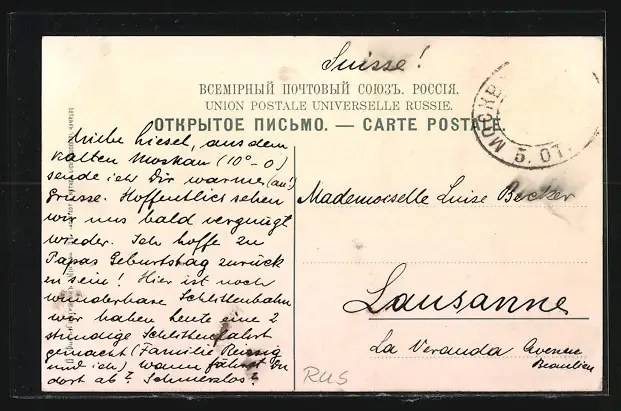 Suisse!
ВСЕМІРНЫЙ ПОЧТОВЫЙ СОЮЗЪ. РОССІЯ.
UNION POSTALE UNIVERSELLE RUSSIE.
ОТКРЫТОЕ ПИСЬМО. — CARTE POSTALE.
МОСКВА
5. 01.
Liebe Liesel, aus dem
kalten Moskau (10°-0)
sende ich Dir warme (au!)
Grüsse. Hoffentlich sehen
wir uns bald vergnügt
wieder. Ich hoffe zu
Papas Geburtstag zurück
zu sein! Hier ist noch
wunderbare Schlittenbahn
wir haben heute eine 2
stündige Schlittenfahrt
gemacht (Familie
und ich) wann fährst Du
dort ab? Schmerzlos?
Mademoiselle Luise Becker
Lausanne
La Veranda Avenue
Beaulieu
RUS